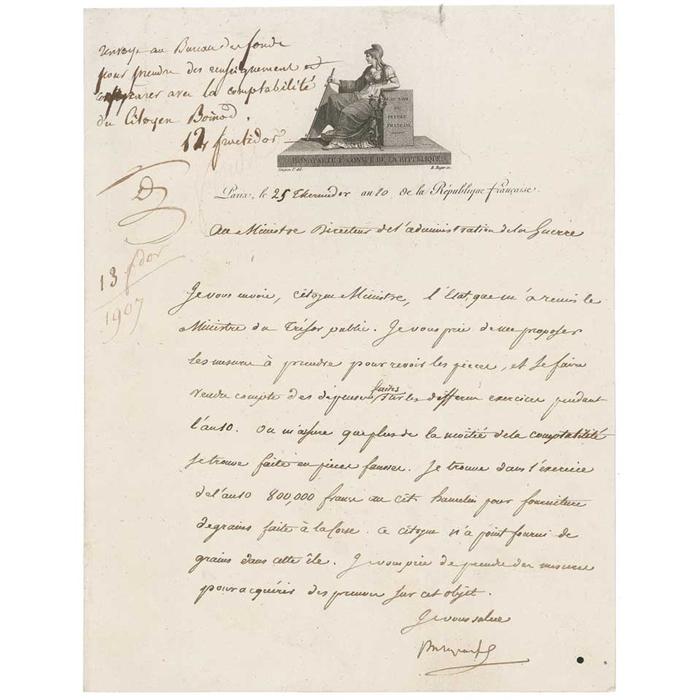 Renvoyé au Bureau des fonds
pour prendre des renseignements et
conférer avec la comptabilité
du Citoyen Boinod.
12 fructidor
AU NOM
DU
PEUPLE
FRANÇAIS.
BONAPARTE 1er CONSUL DE LA RÉPUBLIQUE
Paris, le 25 Thermidor an 10 de la République française.
13 fdor
1907
Au Ministre Directeur de l'administration de la Guerre
Je vous envoie, citoyen Ministre, l'État que m'a remis le
Ministre du Trésor public. Je vous prie de me proposer
les mesures à prendre pour revoir les pièces, et se faire
rendre compte des dépenses faites sur les différens exercices pendant
l'an 10. On m'assure que plus de la moitié de la comptabilité
se trouve faite en pièces fausses. Je trouve dans l'exercice
de l'an 10 800,000 francs au cit. hamelin pour fourniture
de grains faite à la Corse. Ce citoyen n'a point fourni de
grains dans cette île. Je vous prie de prendre des mesures
pour acquérir des preuves sur cet objet.
Je vous salue